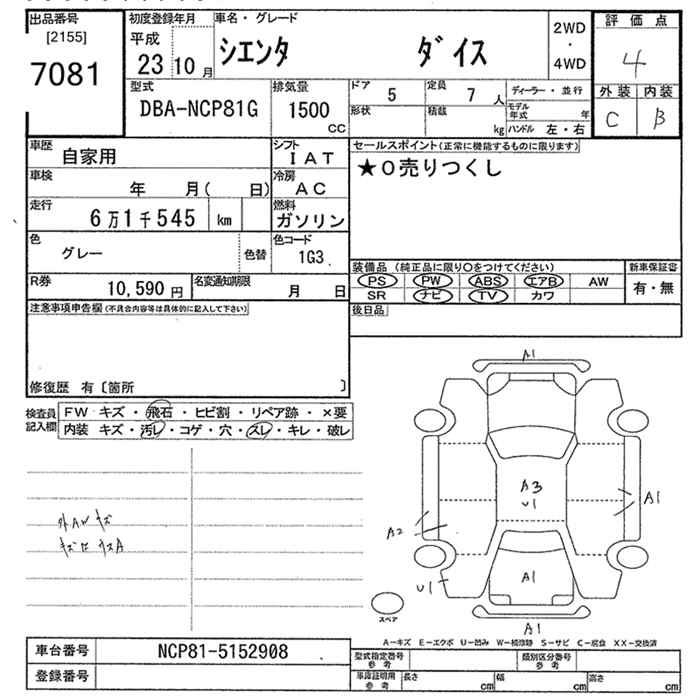 出品番号
[2155]
7081
初度登録年月
平成
23 10 月
車名・グレード
シエンタ ダイス
2WD
・
4WD
評価点
4
外装 内装
C B
型式
DBA-NCP81G
排気量
1500
CC
ドア 5
定員 7 人
形状
積載 kg
ディーラー・並行
モデル年式 年
ハンドル 左・右
車歴
自家用
シフト
IAT
セールスポイント(正常に機能するものに限ります)
★O売りつくし
車検
年 月( 日)
冷房
AC
走行
6万1千545 km
燃料
ガソリン
色
グレー
色替
色コード
1G3
R券
10,590 円
名変通知期限
月 日
装備品 (純正品に限り○をつけてください)
PS PW ABS エアB AW
SR ナビ TV カワ
新車保証書
有・無
注意事項申告欄(不具合内容等は具体的に記入して下さい)
後日品
修復歴 有〔箇所 〕
検査員記入欄
FW キズ・飛石・ヒビ割・リペア跡・×要
内装 キズ・汚レ・コゲ・穴・スレ・キレ・破レ
外AWキズ
A1
A3
U1
A1
A2
U1
A1
A1
スペア
A-キズ E-エクボ U-凹み W-補修跡 S-サビ C-腐食 XX-交換済
車台番号
NCP81-5152908
登録番号
型式指定番号 参考
類別区分番号 参考
車庫証明用 参考
長さ cm
幅 cm
高さ cm